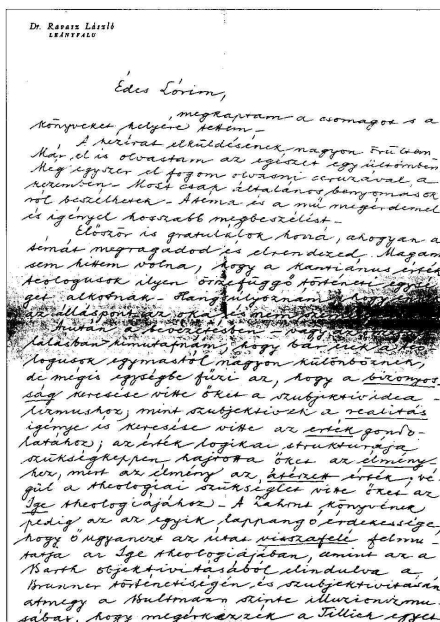 Dr. Ravasz László
LEÁNYFALU
Édes Lórim,
megkaptam a csomagot s a
könyveket helyére tettem –
A kézirat elküldésének nagyon örültem
Már el is olvastam az egészet együltömben
Még egyszer el fogom olvasni ceruzával a
kezemben – Most csak általános benyomások
ról beszélhetek – A téma és a mű megérdemel
és igényel hosszabb megbeszélést –
Először is gratulálok hozzá, ahogyan a
témát megragadod és elrendezed. Magam
sem hittem volna, hogy a kantiánus érték
teologusok ilyen összefüggő történeti
get alkotnak. Hangsúlyoznám, hogy
az álláspont az oka, és
Aután a bevezetésben
lalásban kimutatnám, hogy ba
logusok egymástól nagyon különböznek,
de mégis egységbe fűzi az, hogy a bizonyos
ság keresése vitte őket a szubjektív idea
lizmushoz; mint szubjektívek a realitás
igénye és keresése vitte az érték gondo
latához; az érték logikai strukturája
szükségképpen hajtotta őket az élmény-
hez, mert az élmény az átérzett érték; vé-
gül a theologiai szükséglet vitte őket az
Ige theologiájához – A Zahrnt könyvének
pedig az az egyik lappangó érdekessége,
hogy ő ugyanezt az utat visszafelé felmu-
tatja az Ige theologiájában, amint az a
Barth objektivitásából elindulva a
Brunner történetiségén és szubjektivitásán
átmegy a Bultmann szinte illuzionizmu-
sába, hogy megérkezzék a Tillich egyet